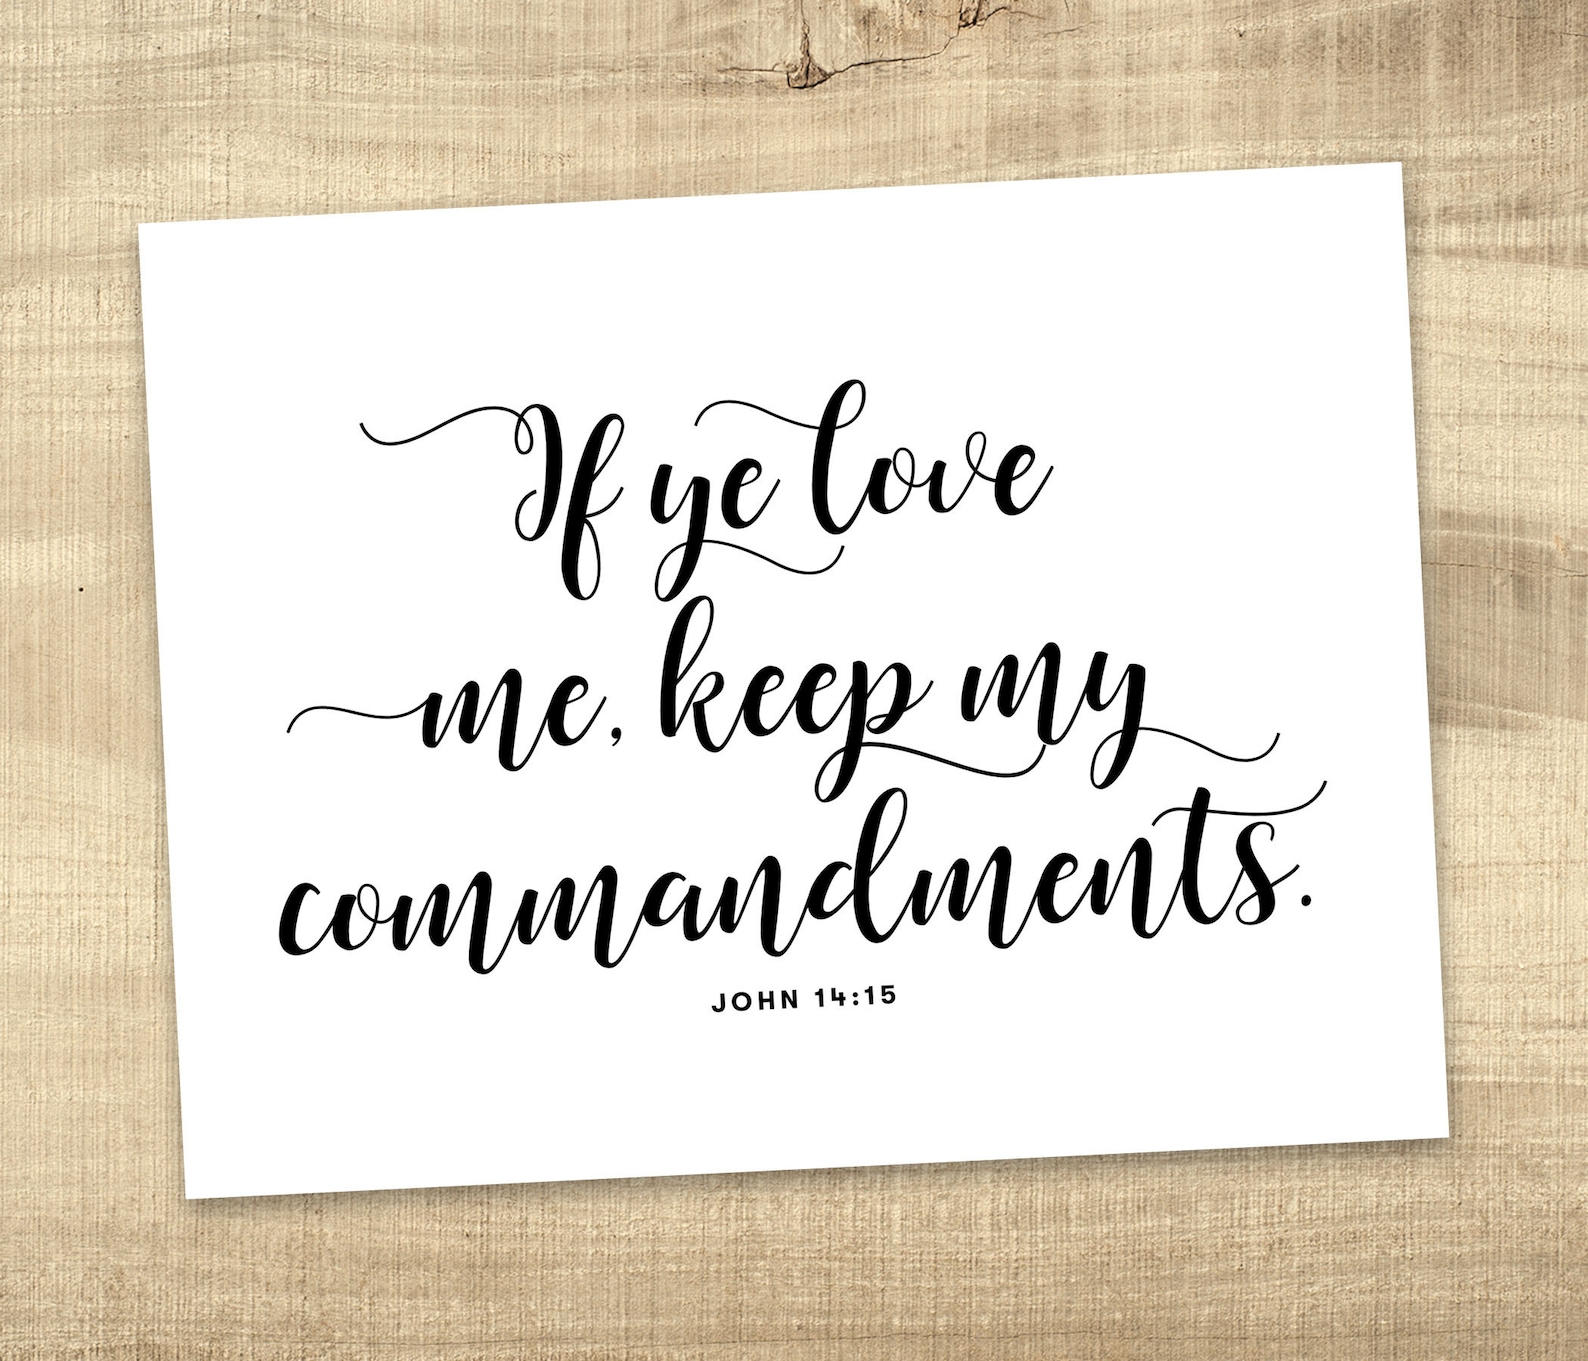 If ye love
me, keep my
commandments.
JOHN 14:15